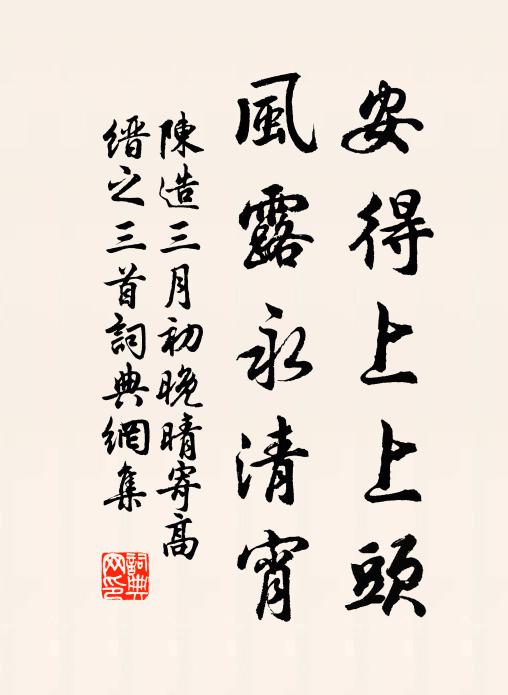 安得上上頭
風露永清宵
陳造三月初晚晴寄高
縉之三首詞典網集
詞典
网印